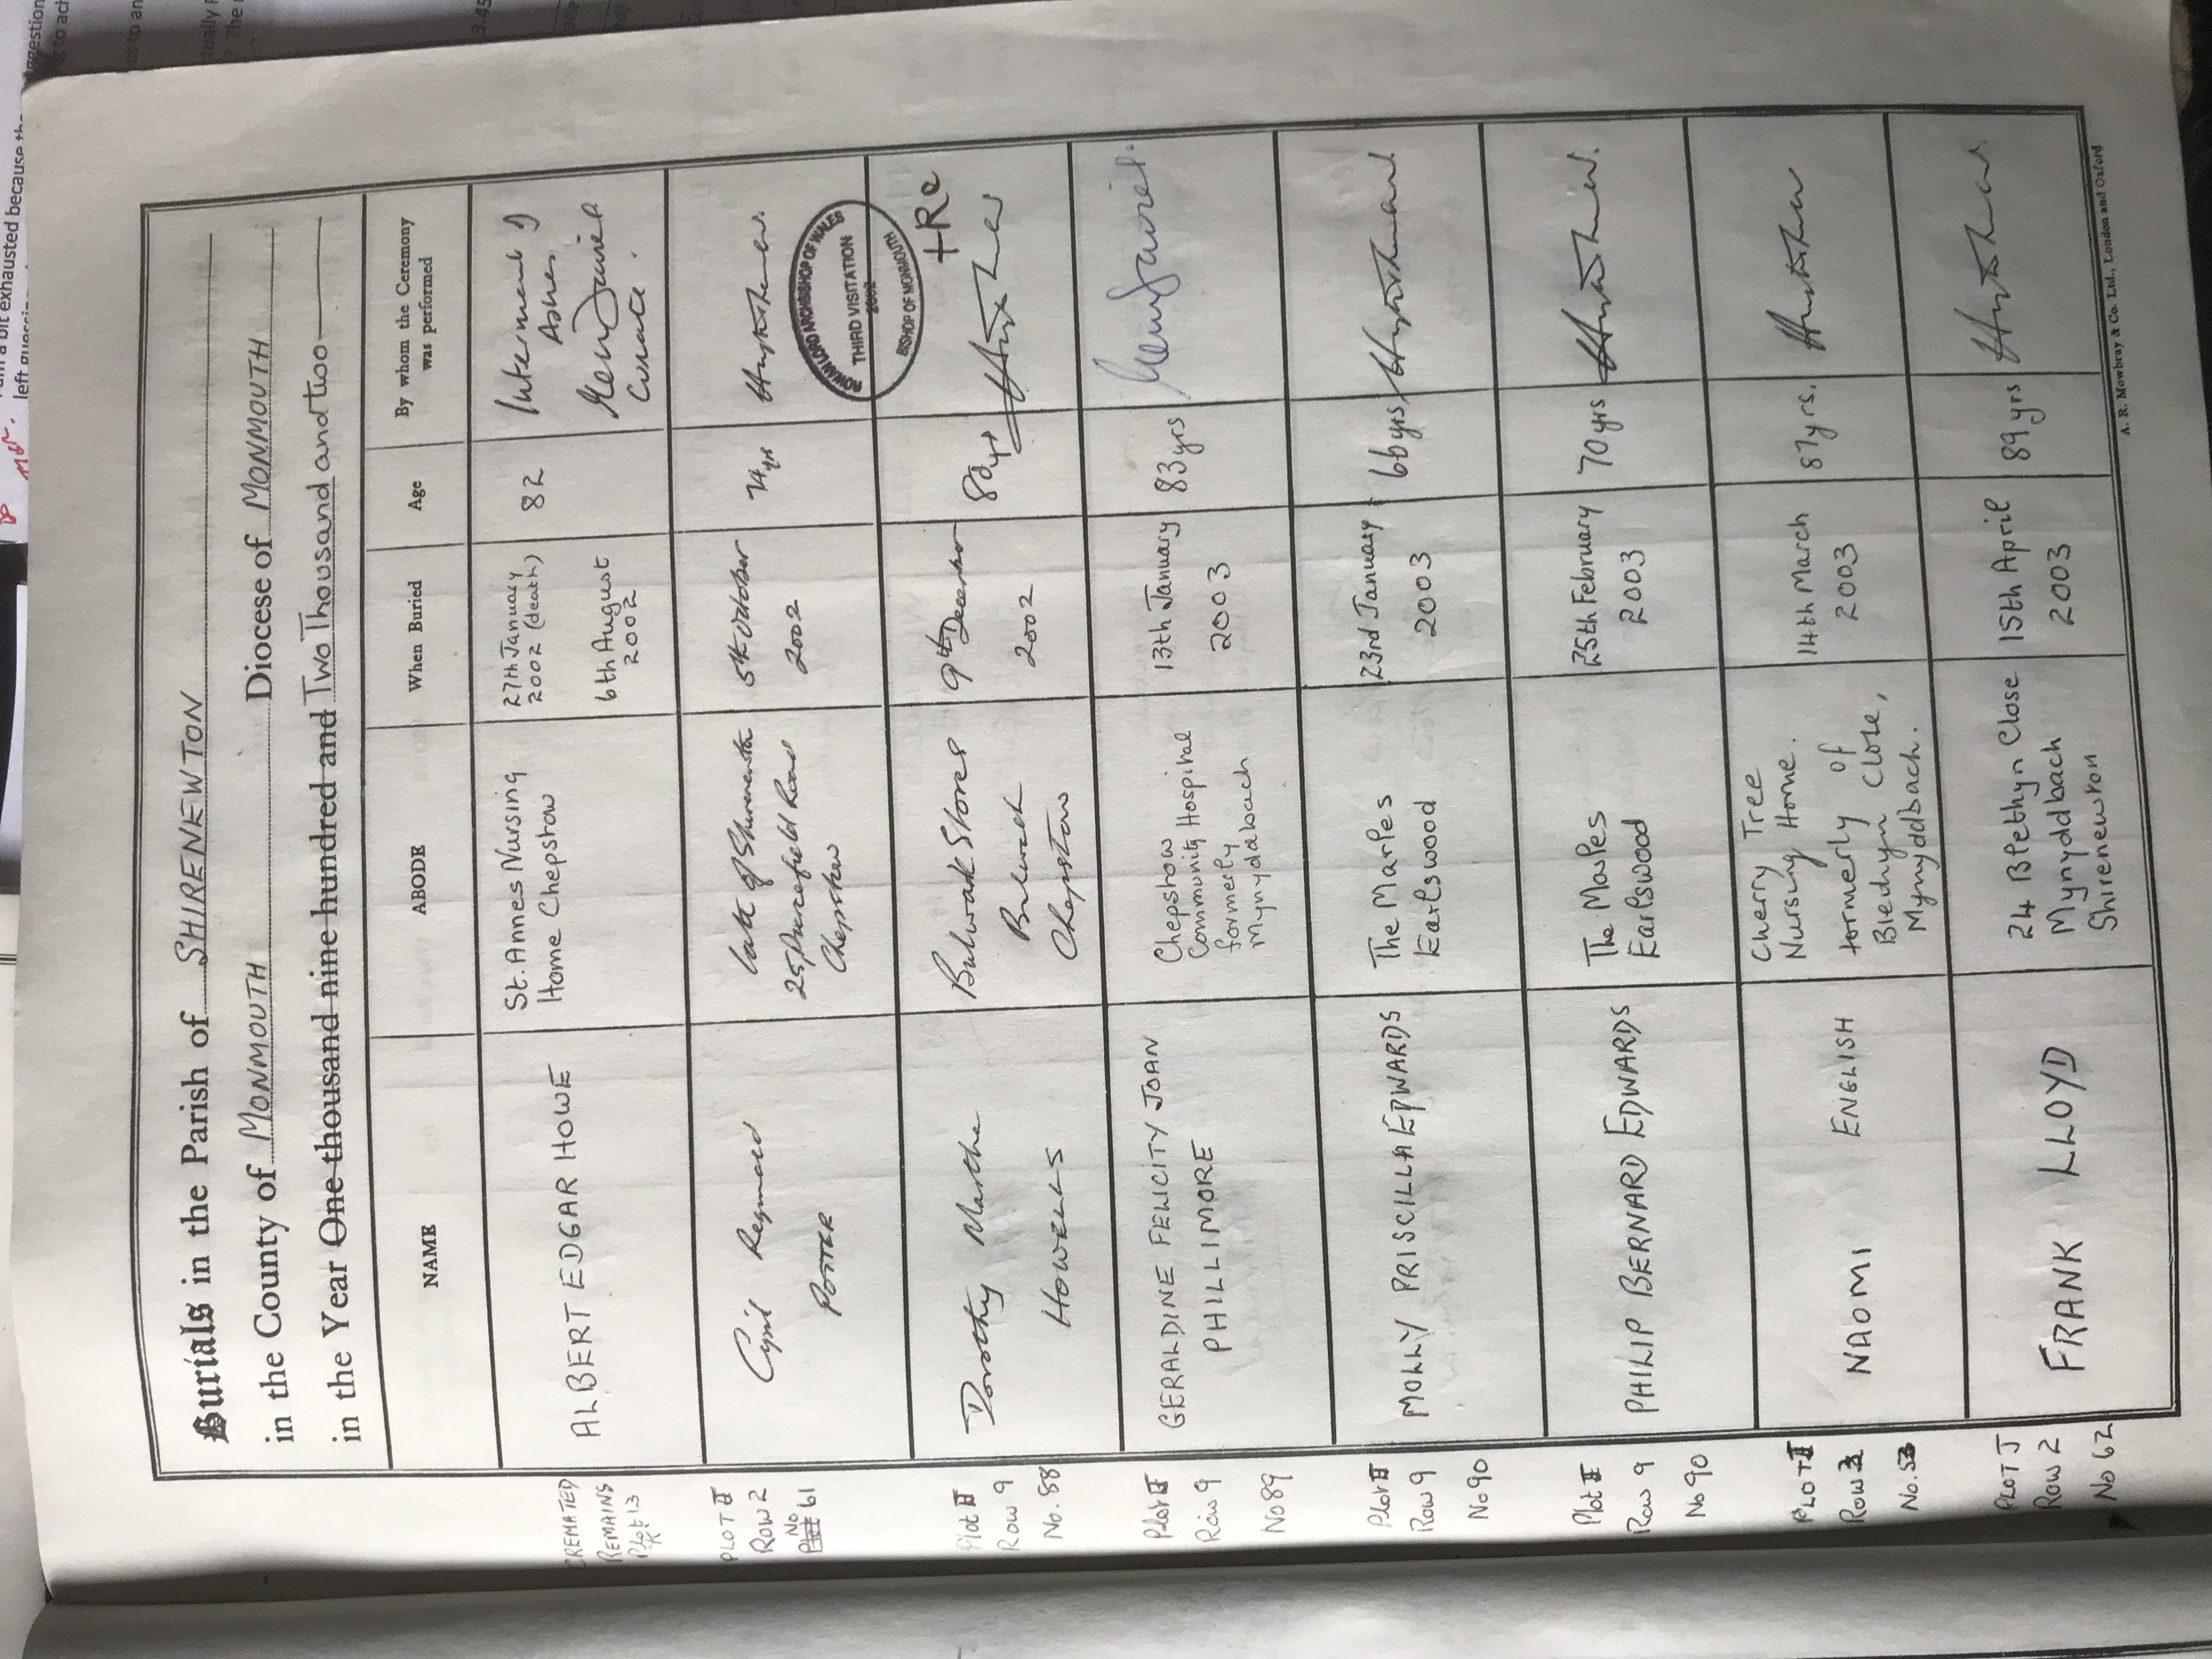 Burials in the Parish of SHIRENEWTON
in the County of MONMOUTH Diocese of MONMOUTH
in the Year One thousand nine hundred and Two Thousand and two
NAME ABODE When Buried Age By whom the Ceremony was performed
CREMATED
REMAINS
Plot 13
ALBERT EDGAR HOWE
St. Annes Nursing
Home Chepstow
27th January
2002 (death)
6th August
2002
82
Interment of
Ashes
Curate.
PLOT II
ROW 2
No 61
Cyril Reginald
PORTER
late of Shirenewton
25 Purcefield Road
Chepstow
5th October
2002
74 yrs
ROWAN LORD ARCHBISHOP OF WALES
THIRD VISITATION
2002
BISHOP OF MONMOUTH
Plot II
Row 9
No. 88
Dorothy Martha
HOWELLS
Bulwark Stores
Bulwark
Chepstow
9th December
2002
Plot II
Row 9
No 89
GERALDINE FELICITY JOAN
PHILLIMORE
Chepstow
Community Hospital
formerly
Mynyddbach
13th January
2003
83 yrs
Plot II
Row 9
No 90
MOLLY PRISCILLA EDWARDS
The Marles
Earlswood
23rd January
2003
66 yrs
Plot II
Row 9
No 90
PHILIP BERNARD EDWARDS
The Maples
Earlswood
25th February
2003
70 yrs
PLOT II
Row 3
No. 53
NAOMI ENGLISH
Cherry Tree
Nursing Home.
formerly of
Bledhyn Close,
Mynyddbach.
14th March
2003
87 yrs.
PLOT J
Row 2
No 62
FRANK LLOYD
24 Blethyn Close
Mynyddbach
Shirenewton
15th April
2003
89 yrs
A. R. Mowbray & Co. Ltd., London and Oxford